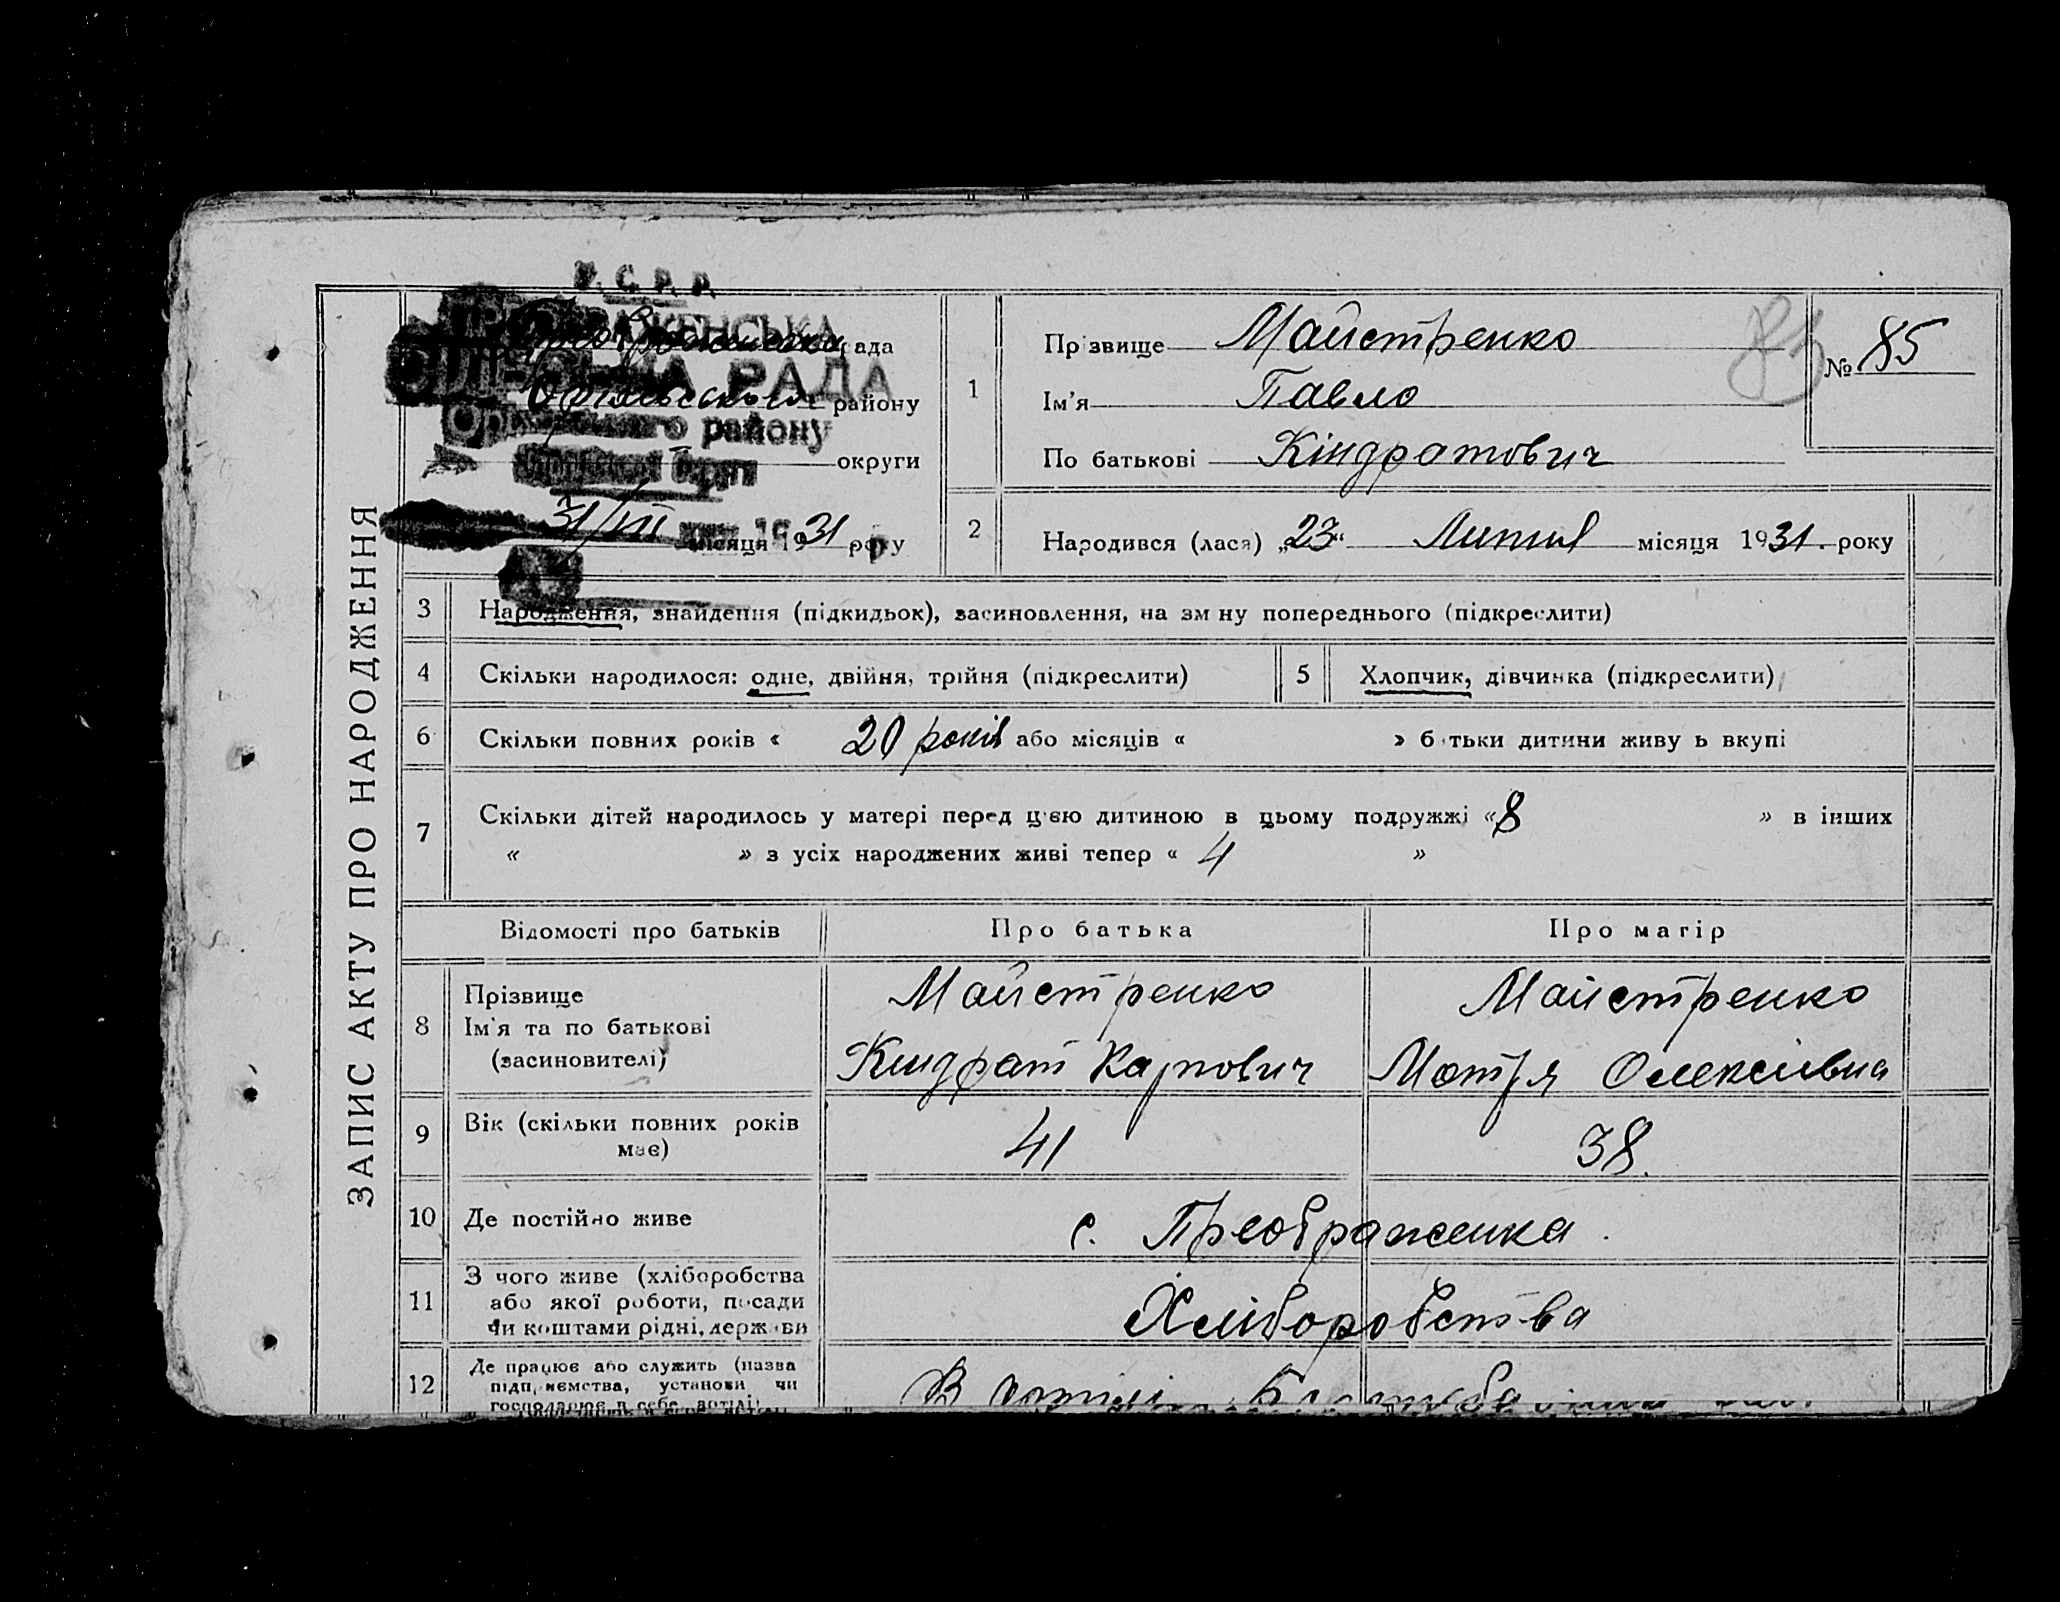 ЗАПИС АКТУ ПРО НАРОДЖЕННЯ
У. С. Р. Р.
Преображенська рада
РАДА
Оріхівського району
району
округи
31/VII місяця 1931 року
1
Прізвище Майстренко
Ім'я Павло
По батькові Кіндратович
83
№ 85
2
Народився (лася) „23“ Липня місяця 1931. року
3 Народження, знайдення (підкидьок), засиновлення, на зміну попереднього (підкреслити)
4 Скільки народилося: одне, двійня, трійня (підкреслити)
5 Хлопчик, дівчинка (підкреслити)
6 Скільки повних років « 20 років або місяців « » батьки дитини живуть вкупі
7 Скільки дітей народилось у матері перед цією дитиною в цьому подружжі « 8 » в інших
« » з усіх народжених живі тепер « 4 »
Відомості про батьків Про батька Про матір
8 Прізвище
Ім'я та по батькові
(засиновителі)
Майстренко
Кіндрат Карпович
Майстренко
Мотря Олексіївна
9 Вік (скільки повних років
має)
41
38.
10 Де постійно живе с. Преображенка.
11 З чого живе (хліборобства
або якої роботи, посади
чи коштами рідні, держави
Хліборобства
12 Де працює або служить (назва
підприємства, установи чи
господарює в себе, артілі)
В артілі